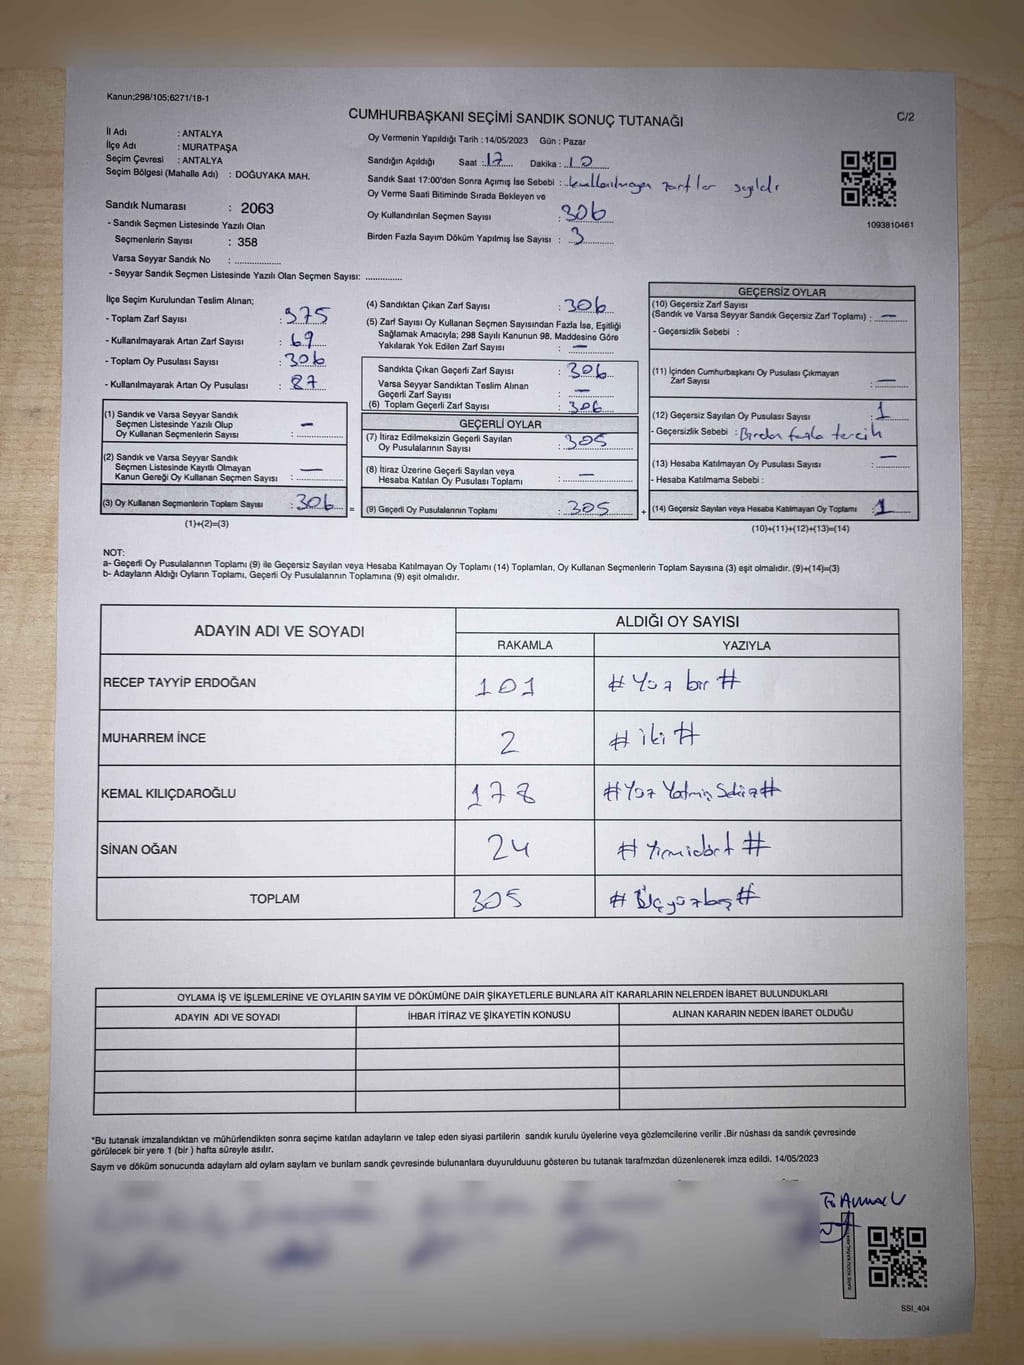 Kanun;298/105;6271/18-1
CUMHURBAŞKANI SEÇİMİ SANDIK SONUÇ TUTANAĞI
C/2
İl Adı : ANTALYA
İlçe Adı : MURATPAŞA
Seçim Çevresi : ANTALYA
Seçim Bölgesi (Mahalle Adı) : DOĞUYAKA MAH.
Sandık Numarası : 2063
- Sandık Seçmen Listesinde Yazılı Olan
Seçmenlerin Sayısı : 358
Varsa Seyyar Sandık No : ..............
- Seyyar Sandık Seçmen Listesinde Yazılı Olan Seçmen Sayısı: ............
Oy Vermenin Yapıldığı Tarih : 14/05/2023 Gün : Pazar
Sandığın Açıldığı Saat : 17 Dakika : 10
Sandık Saat 17:00'den Sonra Açımış İse Sebebi : kullanılmayan zarflar sayıldı
Oy Verme Saati Bitiminde Sırada Bekleyen ve
Oy Kullandırılan Seçmen Sayısı : 306
Birden Fazla Sayım Döküm Yapılmış İse Sayısı : 3
1093810461
İlçe Seçim Kurulundan Teslim Alınan;
- Toplam Zarf Sayısı : 375
- Kullanılmayarak Artan Zarf Sayısı : 69
- Toplam Oy Pusulası Sayısı : 306
- Kullanılmayarak Artan Oy Pusulası : 87
(1) Sandık ve Varsa Seyyar Sandık
Seçmen Listesinde Yazılı Olup
Oy Kullanan Seçmenlerin Sayısı : –
(2) Sandık ve Varsa Seyyar Sandık
Seçmen Listesinde Kayıtlı Olmayan
Kanun Gereği Oy Kullanan Seçmen Sayısı : –
(3) Oy Kullanan Seçmenlerin Toplam Sayısı : 306 =
(1)+(2)=(3)
(4) Sandıktan Çıkan Zarf Sayısı : 306
(5) Zarf Sayısı Oy Kullanan Seçmen Sayısından Fazla İse, Eşitliği
Sağlamak Amacıyla; 298 Sayılı Kanunun 98. Maddesine Göre
Yakılarak Yok Edilen Zarf Sayısı : –
Sandıkta Çıkan Geçerli Zarf Sayısı : 306
Varsa Seyyar Sandıktan Teslim Alınan
Geçerli Zarf Sayısı : –
(6) Toplam Geçerli Zarf Sayısı : 306
GEÇERLİ OYLAR
(7) İtiraz Edilmeksizin Geçerli Sayılan
Oy Pusulalarının Sayısı : 305
(8) İtiraz Üzerine Geçerli Sayılan veya
Hesaba Katılan Oy Pusulası Toplamı : –
(9) Geçerli Oy Pusulalarının Toplamı : 305 +
GEÇERSİZ OYLAR
(10) Geçersiz Zarf Sayısı
(Sandık ve Varsa Seyyar Sandık Geçersiz Zarf Toplamı) : –
- Geçersizlik Sebebi :
(11) İçinden Cumhurbaşkanı Oy Pusulası Çıkmayan
Zarf Sayısı : –
(12) Geçersiz Sayılan Oy Pusulası Sayısı : 1
- Geçersizlik Sebebi : Birden fazla tercih
(13) Hesaba Katılmayan Oy Pusulası Sayısı : –
- Hesaba Katılmama Sebebi :
(14) Geçersiz Sayılan veya Hesaba Katılmayan Oy Toplamı : 1
(10)+(11)+(12)+(13)=(14)
NOT:
a- Geçerli Oy Pusulalarının Toplamı (9) ile Geçersiz Sayılan veya Hesaba Katılmayan Oy Toplamı (14) Toplamları, Oy Kullanan Seçmenlerin Toplam Sayısına (3) eşit olmalıdır. (9)+(14)=(3)
b- Adayların Aldığı Oyların Toplamı, Geçerli Oy Pusulalarının Toplamına (9) eşit olmalıdır.
ADAYIN ADI VE SOYADI ALDIĞI OY SAYISI
RAKAMLA YAZIYLA
RECEP TAYYİP ERDOĞAN 101 # Yüz bir #
MUHARREM İNCE 2 # iki #
KEMAL KILIÇDAROĞLU 178 # Yüz Yetmiş Sekiz #
SİNAN OĞAN 24 # Yirmidört #
TOPLAM 305 # Üçyüzbeş #
OYLAMA İŞ VE İŞLEMLERİNE VE OYLARIN SAYIM VE DÖKÜMÜNE DAİR ŞİKAYETLERLE BUNLARA AİT KARARLARIN NELERDEN İBARET BULUNDUKLARI
ADAYIN ADI VE SOYADI İHBAR İTİRAZ VE ŞİKAYETİN KONUSU ALINAN KARARIN NEDEN İBARET OLDUĞU
*Bu tutanak imzalandıktan ve mühürlendikten sonra seçime katılan adayların ve talep eden siyasi partilerin sandık kurulu üyelerine veya gözlemcilerine verilir .Bir nüshası da sandık çevresinde
görülecek bir yere 1 (bir ) hafta süreyle asılır.
Sayım ve döküm sonucunda adayların ald oyların sayların ve bunların sandk çevresinde bulunanlara duyurulduunu gösteren bu tutanak tarafmzdan düzenlenerek imza edildi. 14/05/2023
SSI_404